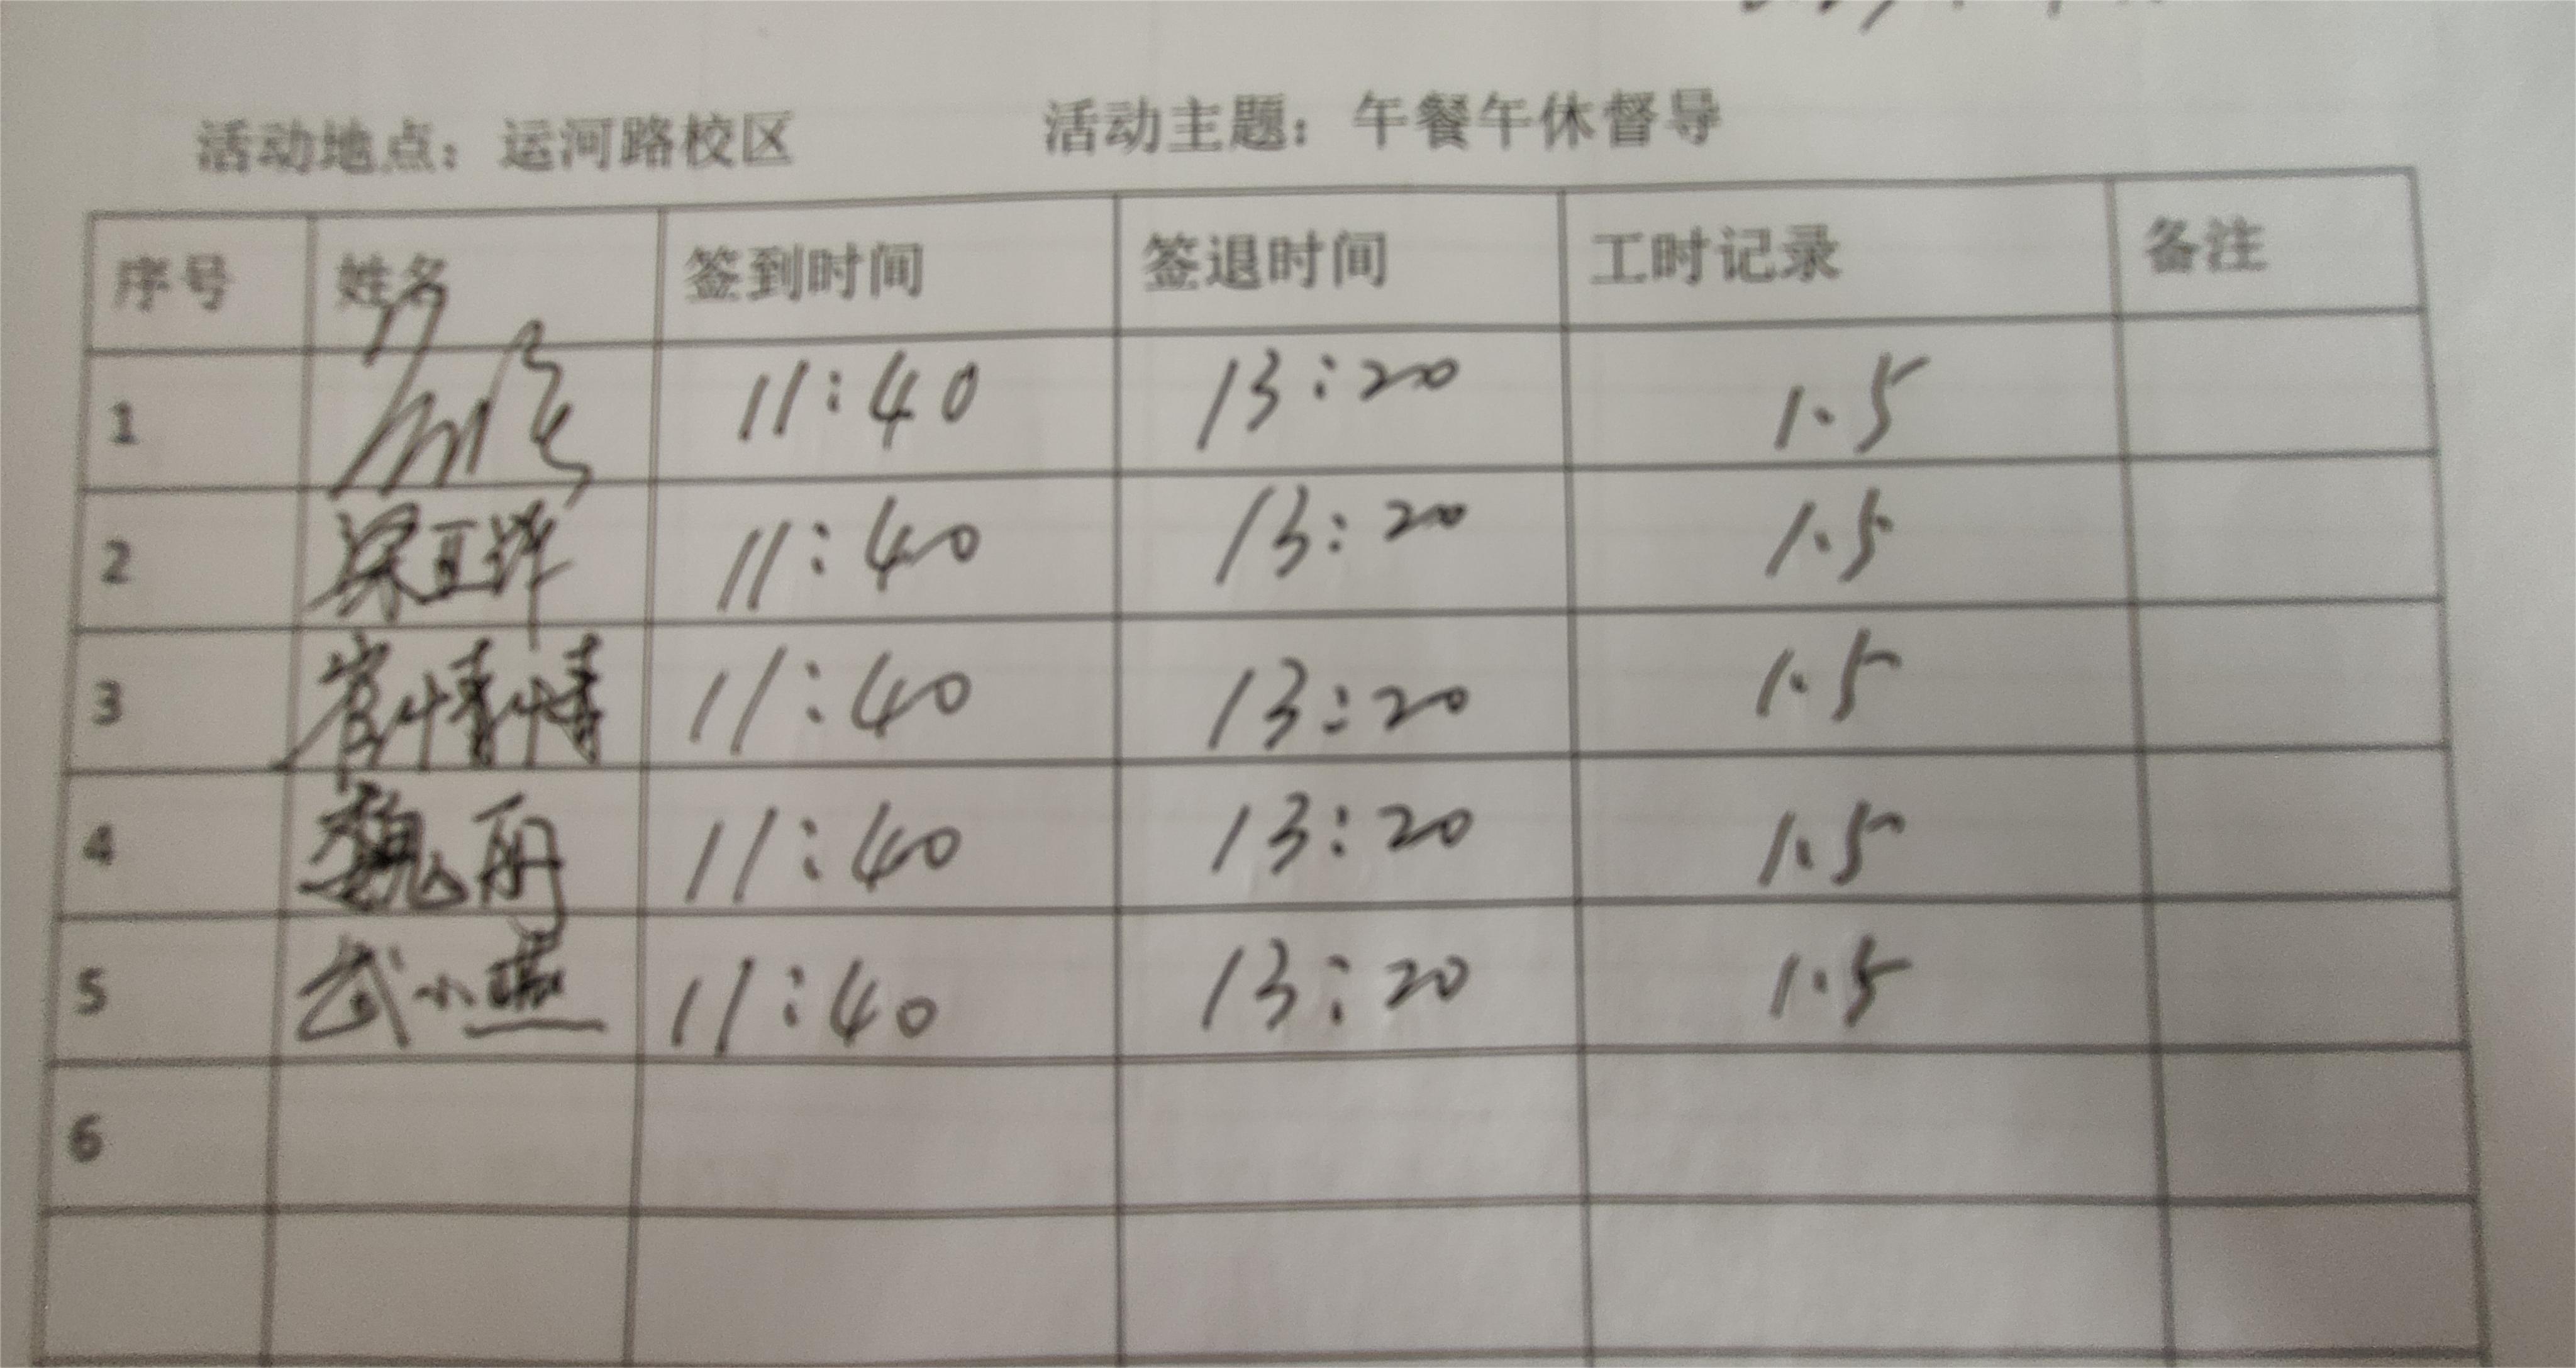 活动地点：运河路校区 活动主题：午餐午休督导
序号 姓名 签到时间 签退时间 工时记录 备注
1 11:40 13:20 1.5
2 梁亚洋 11:40 13:20 1.5
3 崔情情 11:40 13:20 1.5
4 魏丽 11:40 13:20 1.5
5 武小燕 11:40 13:20 1.5
6